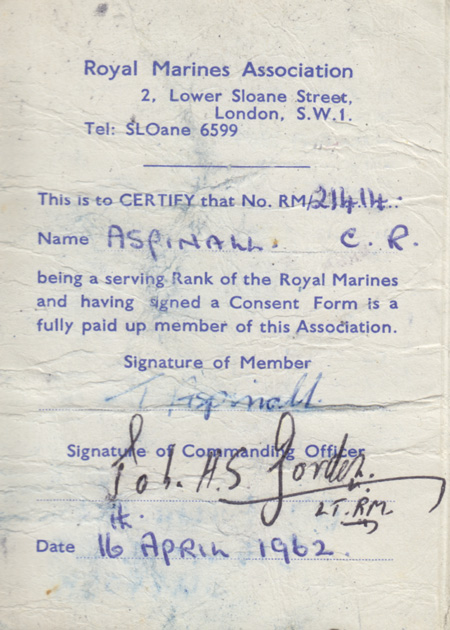 Royal Marines Association
2, Lower Sloane Street,
London, S.W.1.
Tel: SLOane 6599
This is to CERTIFY that No. RM/21414.
Name ASPINALL. C. R.
being a serving Rank of the Royal Marines
and having signed a Consent Form is a
fully paid up member of this Association.
Signature of Member
Aspinall.
Signature of Commanding Officer
LT. RM
Date 16 APRIL 1962.